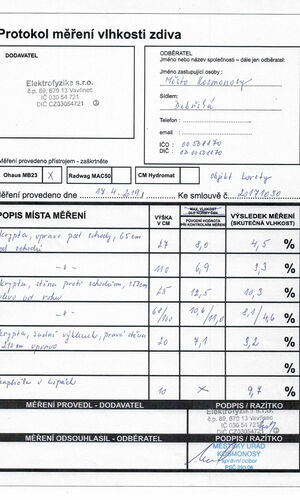 Protokol měření vlhkosti zdiva
DODAVATEL
Elektrofyzika s.r.o.
č.p. 69, 679 13 Vavřinec
IČ 030 54 721
DIČ CZ03054721
ODBĚRATEL
Jméno nebo název společnosti – dále jen odběratel:
Jméno zastupující osoby:
Město Kosmonosy
Sídlem:
Telefon :
email :
IČO : 00508870
DIČ : 00508870
Měření provedeno přístrojem - zaškrtněte
Ohaus MB23 X Radwag MAC50 CM Hydromat objekt Lorety
Měření provedeno dne 17.4.2019 Ke smlouvě č. 20171030
POPIS MÍSTA MĚŘENÍ VÝŠKA V CM MAX. VLHKOST DLE NORMY ČSN PŮVODNÍ HODNOTA PŘI KONTROLNÍM MĚŘENÍ VÝSLEDEK MĚŘENÍ (SKUTEČNÁ VLHKOST)
krypta, vpravo pod schody, 65cm
od schodů 27 8,0 4,5 %
-"- 100 6,9 3,3 %
krypta, stěna proti schodům,
vlevo od 25 12,5 10,3 %
-"- 60/100 10,6/11,0 8,1/4,6 %
krypta, zadní výklenek, pravá stěna
210cm vpravo 20 7,1 3,2 %
kaplička v Lípách 10 x 9,7 %
MĚŘENÍ PROVEDL - DODAVATEL PODPIS / RAZÍTKO
Elektrofyzika s.r.o.
č.p. 69, 679 13 Vavřinec
IČ 030 54 721
DIČ CZ03054721
MĚŘENÍ ODSOUHLASIL - ODBĚRATEL PODPIS / RAZÍTKO
MĚSTSKÝ ÚŘAD
KOSMONOSY
správní odbor
PSČ 293 06